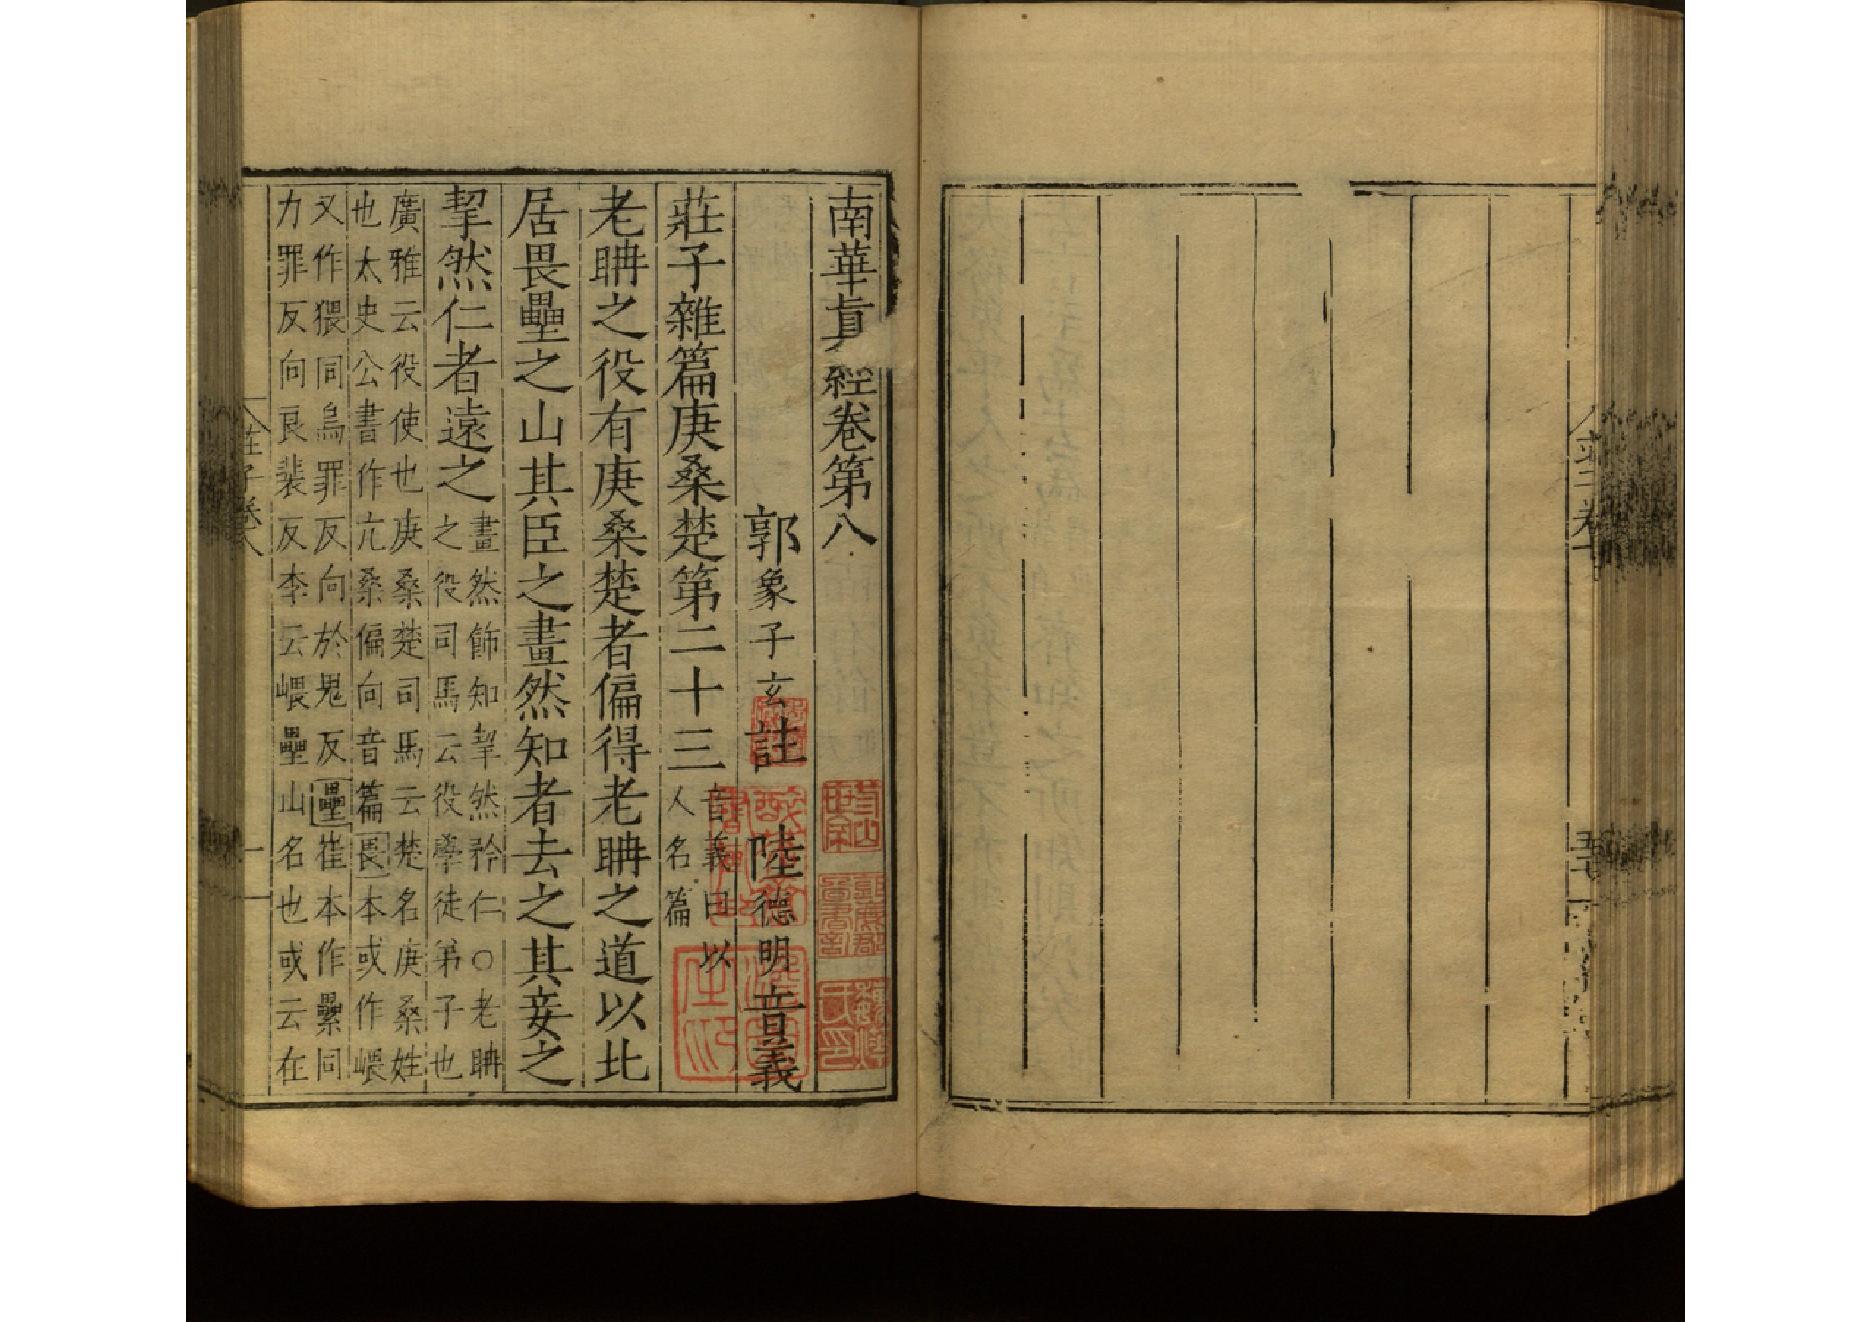 南華眞經卷第八
郭象子玄註 陸德明音義
莊子雜篇庚桑楚第二十三 音義曰以
人名篇
老聃之役有庚桑楚者偏得老聃之道以北
居畏壘之山其臣之畫然知者去之其妾之
挈然仁者遠之 畫然飾知挈然矜仁○老聃
之役司馬云役學徒弟子也
廣雅云役使也庚桑楚司馬云楚名庚桑姓
也太史公書作亢桑偏向音篇畏本或作嵔
又作猥同烏罪反向於鬼反壘崔本作纍同
力罪反向良裴反李云嵔壘山名也或云在
莊子卷八
一
莊子卷七